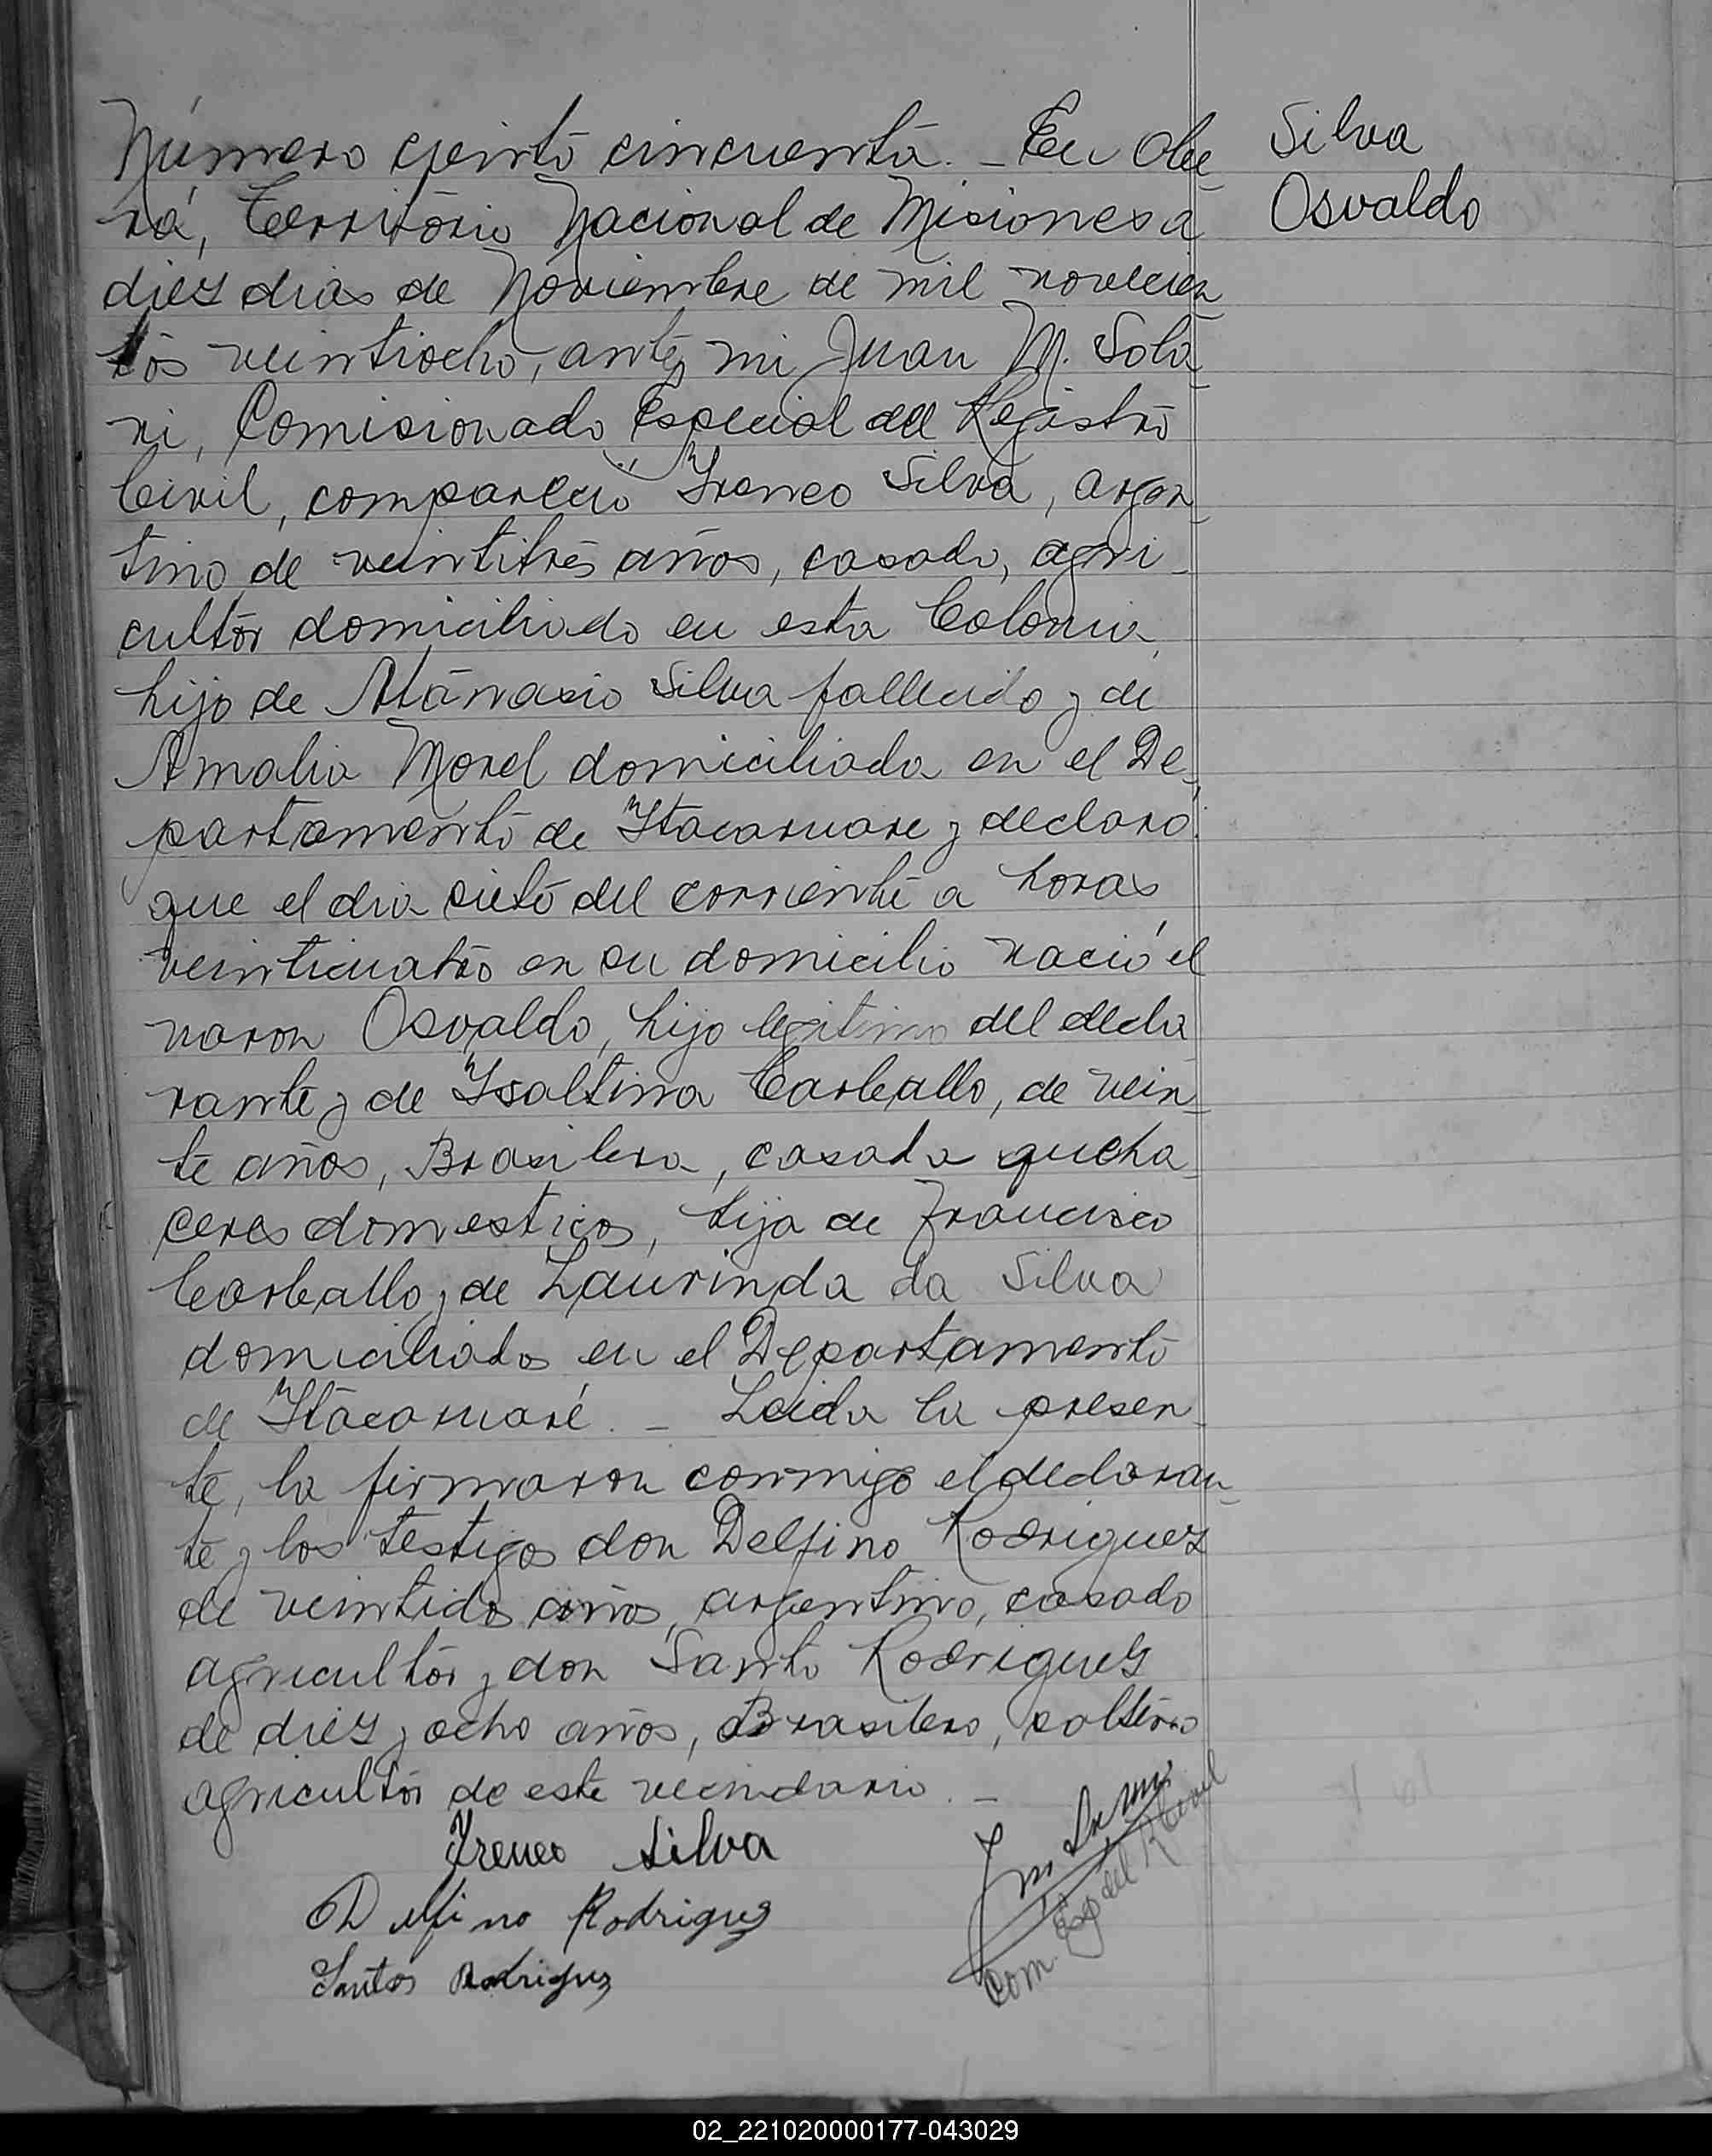 Número ciento cincuenta. _ En Obe-
rá, Territorio Nacional de Misiones a
diez dias de Noviembre de mil novecien
tos veintiocho, ante mi Juan M. Sola-
ni, Comisionado Especial del Registro
Civil, compareció Yreneo Silva, argen-
tino de veintitrés años, casado, agri-
cultor domiciliado en esta Colonia,
hijo de Atanasio Silva fallecido y de
Amalia Morel domiciliada en el De-
partamento de Ytacaruare y declaró:
que el dia siete del corriente a horas
veinticuatro en su domicilio nació el
varon Osvaldo, hijo legitimo del decla
rante y de Ysaltina Carballo, de vein-
te años, Brasilera, casada queha-
ceres domesticos, hija de Francisco
Carballo y de Laurinda da Silva
domiciliados en el Departamento
de Ytacaruaré. _ Leida la presen-
te, la firmaron conmigo el declaran-
te y los testigos don Delfino Rodriguez
de veintidos años, argentino, casado
agricultor y don Santo Rodriguez
de diez y ocho años, Brasilero, soltero
agricultor de este vecindario. _
Yreneo Silva
Delfino Rodriguez
Santos Rodriguez
Com. Esp del R Civil
Silva
Osvaldo
02_221020000177-043029